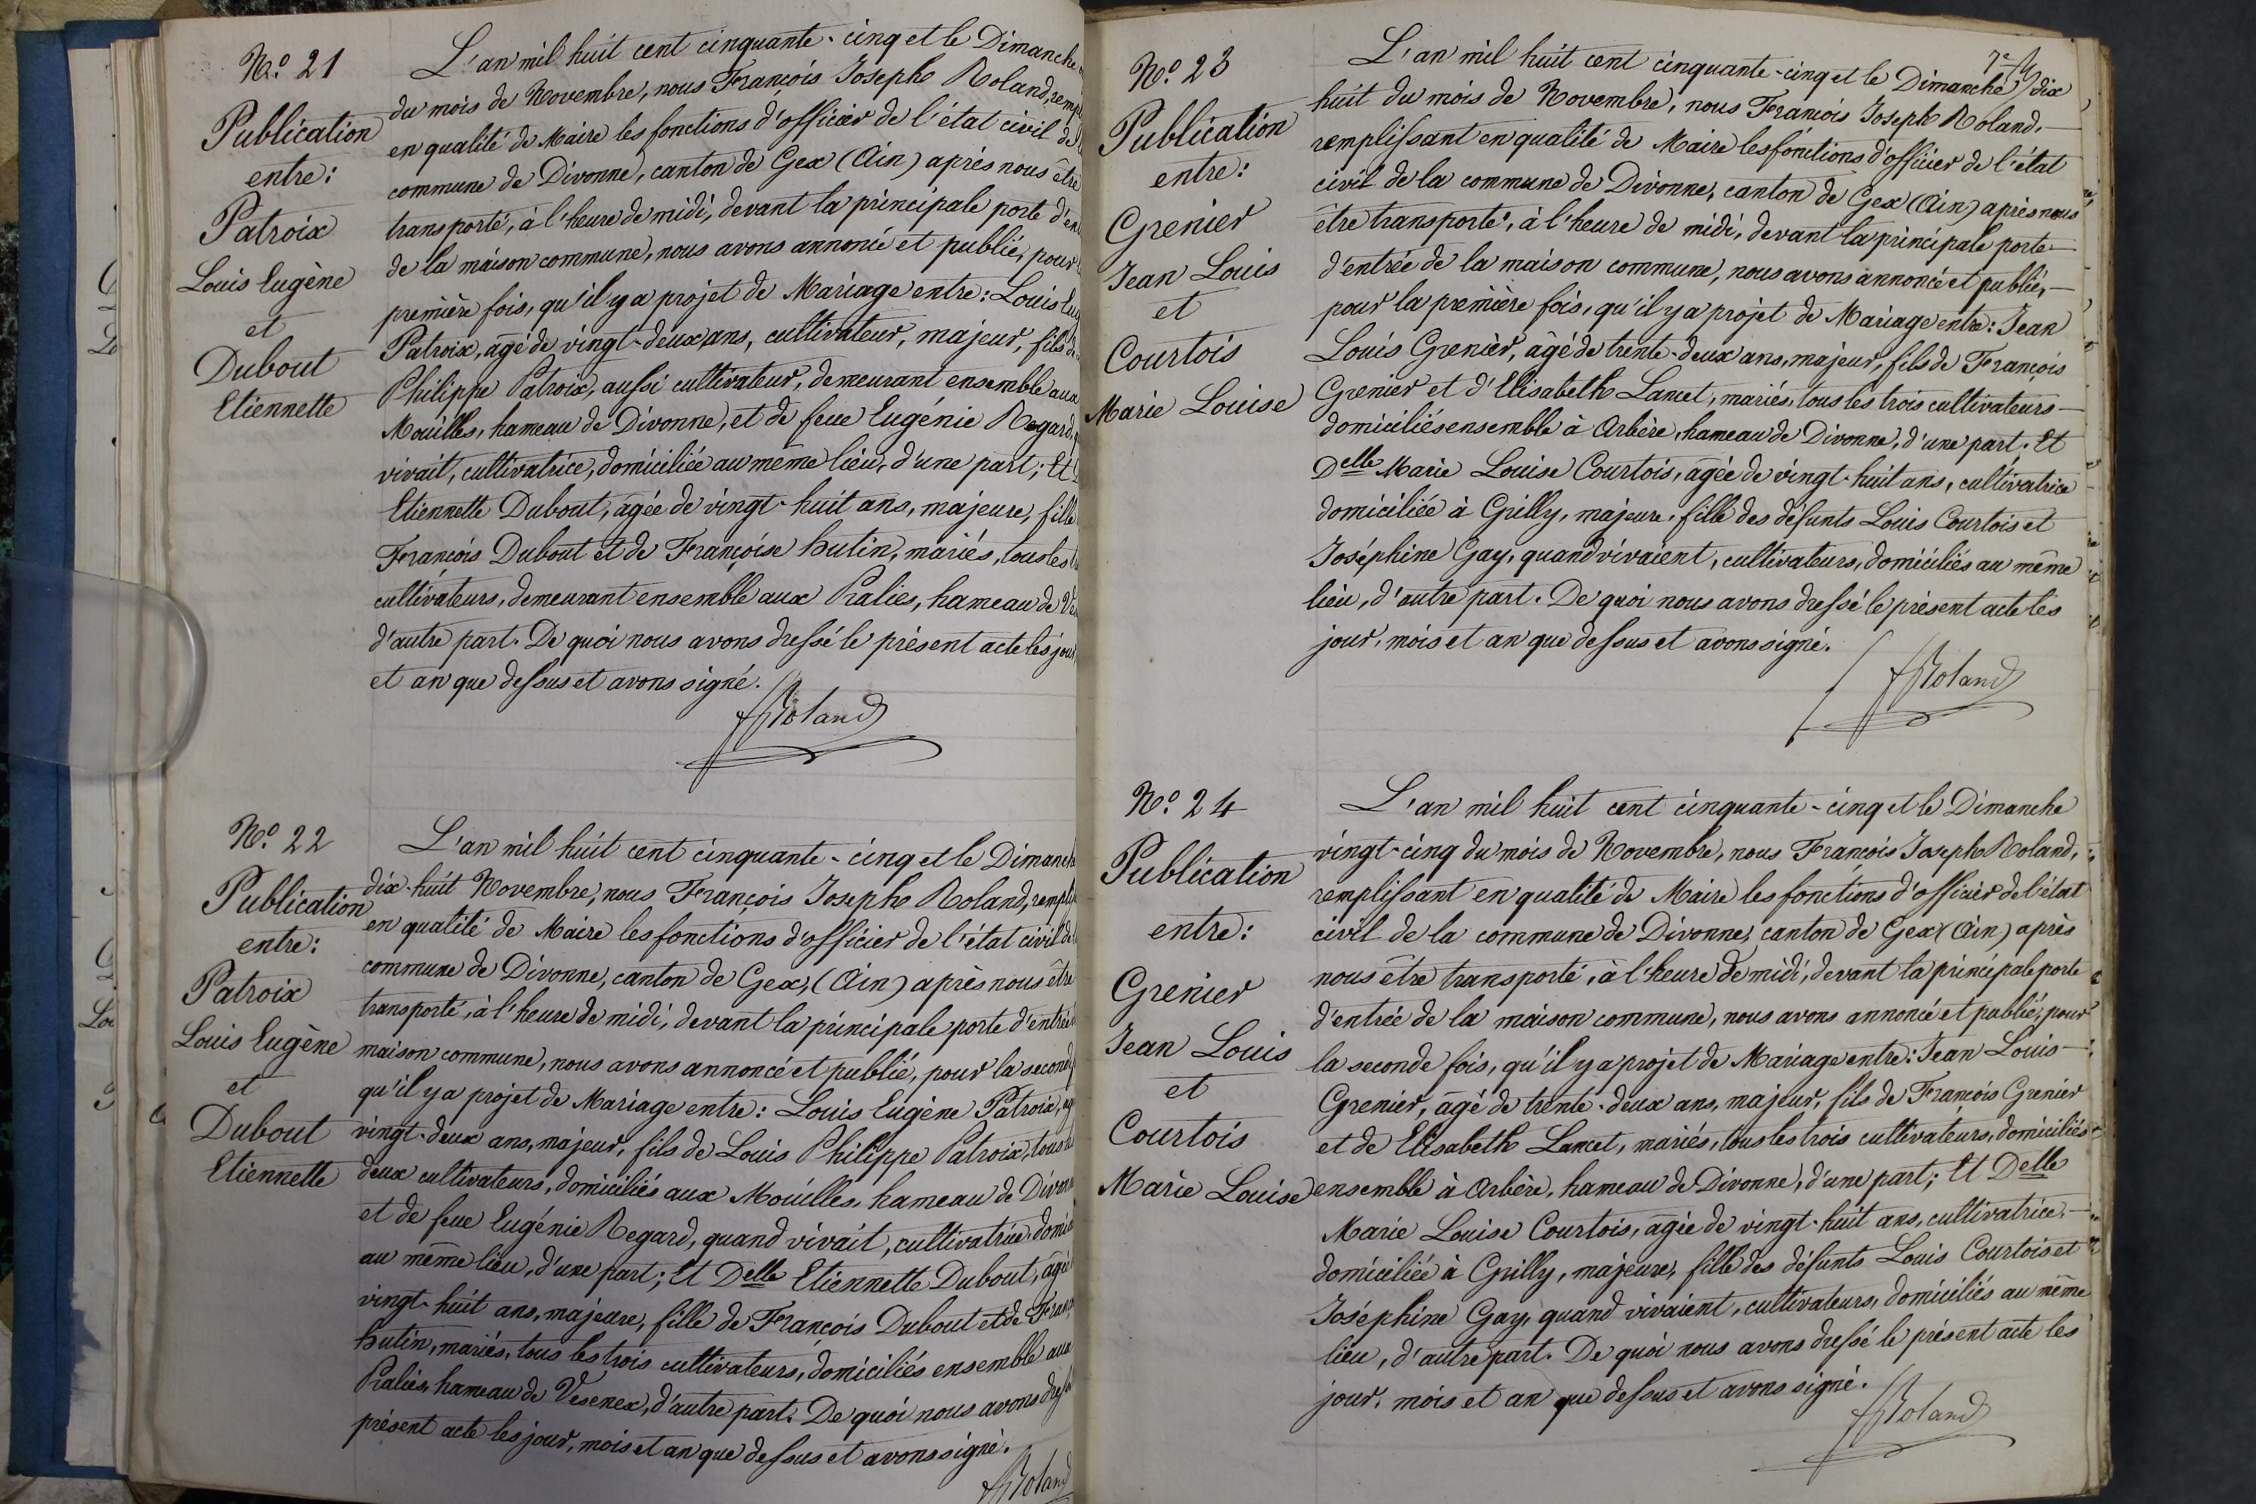 N.º 21
Publication
entre:
Patroix
Louis Eugène
et
Dubout
Etiennette
L'an mil huit cent cinquante-cinq et le Dimanche
du mois de Novembre, nous François Joseph Roland, remp
en qualité de Maire les fonctions d'officier de l'état civil de
commune de Divonne, canton de Gex (Ain) après nous être
transporté, à l'heure de midi, devant la principale porte d'en
de la maison commune, nous avons annoncé et publié, pour
première fois, qu'il y a projet de Mariage entre: Louis Eug
Patroix, âgé de vingt-deux ans, cultivateur, majeur, fils de
Philippe Patroix, aussi cultivateur, demeurant ensemble aux
Mouilles, hameau de Divonne, et de feue Eugénie Regard,
vivait, cultivatrice, domiciliée au même lieu, d'une part; Et
Etiennette Dubout, âgée de vingt-huit ans, majeure, fille
François Dubout et de Françoise Hutin, mariés, tous les
cultivateurs, demeurant ensemble aux Pralies, hameau de
d'autre part. De quoi nous avons dressé le présent acte les jour
et an que dessus et avons signé.
Roland
N.º 22
Publication
entre:
Patroix
Louis Eugène
et
Dubout
Etiennette
L'an mil huit cent cinquante-cinq et le Dimanche
dix-huit Novembre, nous François Joseph Roland, rempl
en qualité de Maire les fonctions d'officier de l'état civil de
commune de Divonne, canton de Gex, (Ain) après nous être
transporté, à l'heure de midi, devant la principale porte d'entrée
maison commune, nous avons annoncé et publié, pour la second
qu'il y a projet de Mariage entre: Louis Eugène Patroix,
vingt-deux ans, majeur, fils de Louis Philippe Patroix, tous
deux cultivateurs, domiciliés aux Mouilles, hameau de Divonn
et de feue Eugénie Regard, quand vivait, cultivatrice, domic
au même lieu, d'une part; Et Delle Etiennette Dubout, âgé
vingt-huit ans, majeure, fille de François Dubout et de Franç
Hutin, mariés, tous les trois cultivateurs, domiciliés ensemble aux
Pralies, hameau de Vesenex, d'autre part. De quoi nous avons dress
présent acte les jour, mois et an que dessus et avons signé.
Roland
7e
N.º 23
Publication
entre:
Grenier
Jean Louis
et
Courtois
Marie Louise
L'an mil huit cent cinquante-cinq et le Dimanche dix
huit du mois de Novembre, nous François Joseph Roland,
remplissant en qualité de Maire les fonctions d'officier de l'état
civil de la commune de Divonne, canton de Gex (Ain) après nous
être transporté, à l'heure de midi, devant la principale porte
d'entrée de la maison commune, nous avons annoncé et publié,
pour la première fois, qu'il y a projet de Mariage entre: Jean
Louis Grenier, âgé de trente-deux ans, majeur, fils de François
Grenier et d'Elisabeth Lancet, mariés, tous les trois cultivateurs
domiciliés ensemble à Arbère, hameau de Divonne, d'une part. Et
Delle Marie Louise Courtois, âgée de vingt-huit ans, cultivatrice
domiciliée à Grilly, majeure, fille des défunts Louis Courtois et
Joséphine Gay, quand vivaient, cultivateurs, domiciliés au même
lieu, d'autre part. De quoi nous avons dressé le présent acte les
jour, mois et an que dessus et avons signé.
Roland
N.º 24
Publication
entre:
Grenier
Jean Louis
et
Courtois
Marie Louise
L'an mil huit cent cinquante-cinq et le Dimanche
vingt-cinq du mois de Novembre, nous François Joseph Roland,
remplissant en qualité de Maire les fonctions d'officier de l'état
civil de la commune de Divonne, canton de Gex (Ain) après
nous être transporté, à l'heure de midi, devant la principale porte
d'entrée de la maison commune, nous avons annoncé et publié, pour
la seconde fois, qu'il y a projet de Mariage entre: Jean Louis
Grenier, âgé de trente-deux ans, majeur, fils de François Grenier
et de Elisabeth Lancet, mariés, tous les trois cultivateurs, domiciliés
ensemble à Arbère, hameau de Divonne, d'une part; Et Delle
Marie Louise Courtois, âgée de vingt-huit ans, cultivatrice,
domiciliée à Grilly, majeure, fille des défunts Louis Courtois et
Joséphine Gay, quand vivaient, cultivateurs, domiciliés au même
lieu, d'autre part. De quoi nous avons dressé le présent acte les
jour, mois et an que dessus et avons signé.
Roland